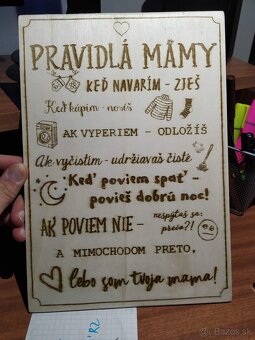 PRAVIDLÁ MÁMY
KEĎ NAVARÍM - ZJEŠ
Keď kúpim - nosíš
AK VYPERIEM - ODLOŽÍŠ
Ak vyčistím - udržiavaš čisté
Keď poviem spať -
povieš dobrú noc!
AK POVIEM NIE -
nespýtaš sa:
prečo?!
A MIMOCHODOM PRETO,
lebo som tvoja mama!
'R2
sBazos.sk